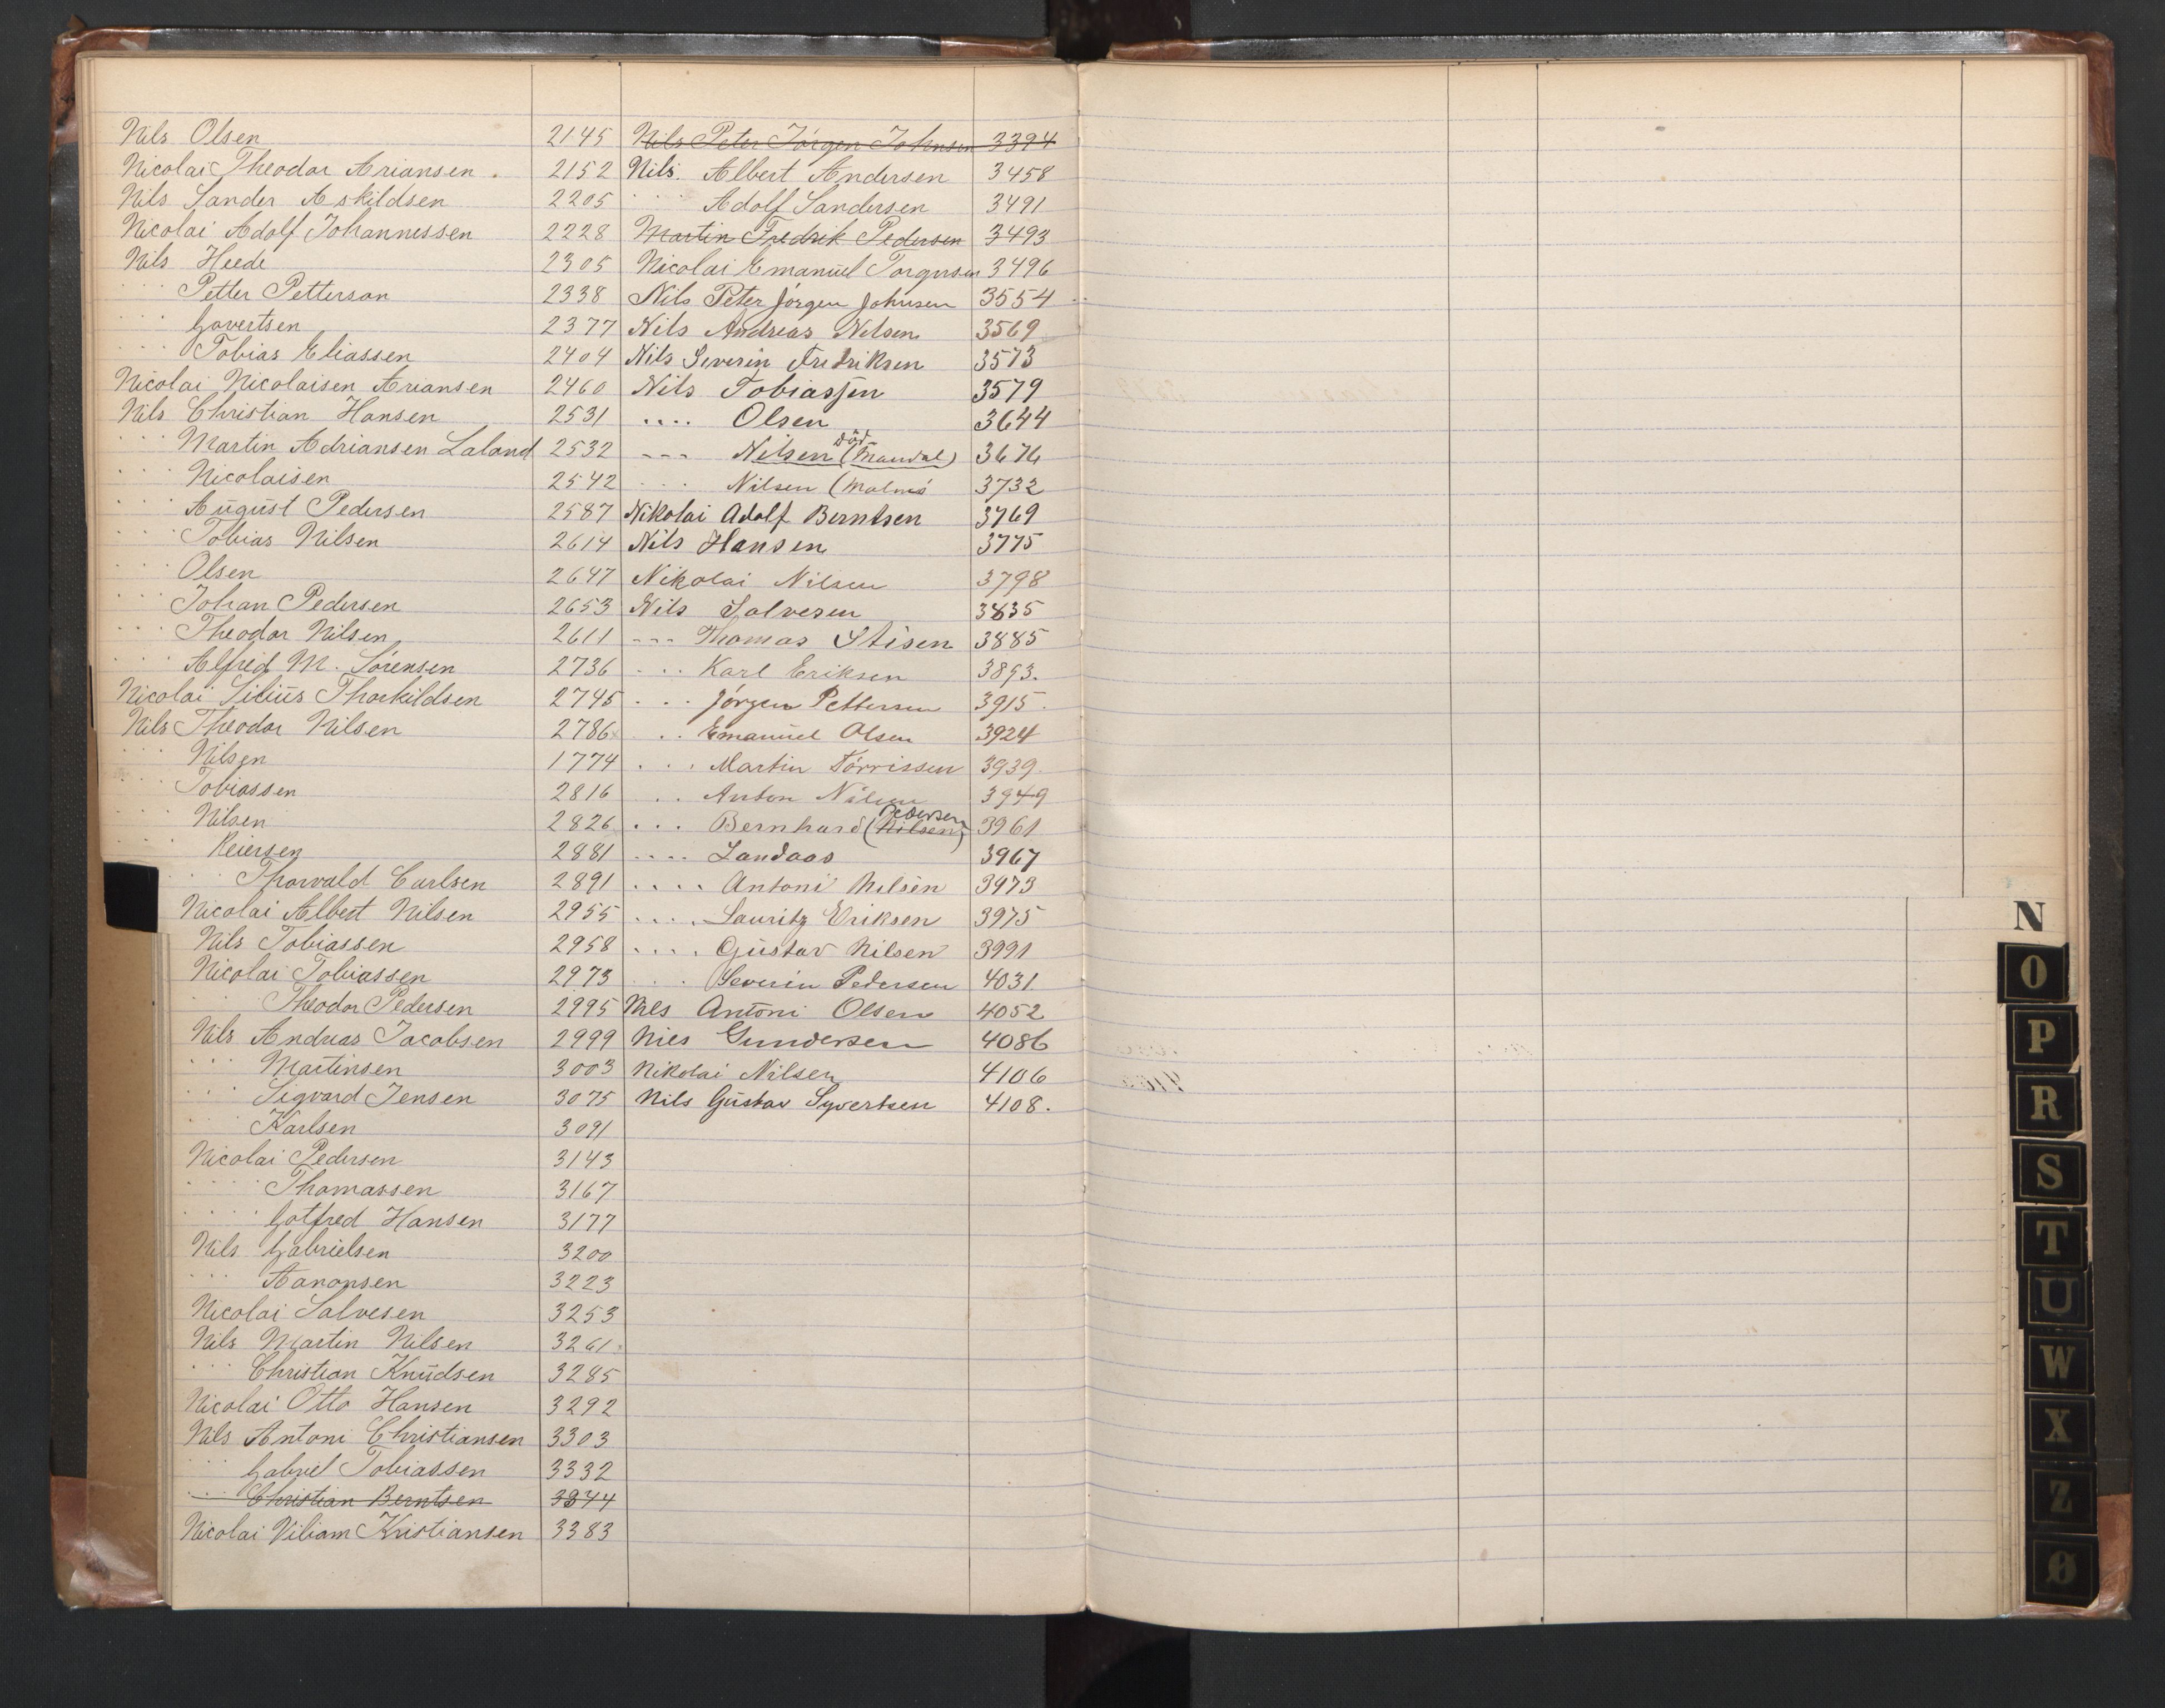 Nils Olsen 2145
Nicolai Theodor Ariansen. 2152
Nils Sander Askildsen 2205
Nicolai Adolf Johannessen 2228
Nils Heede 2305
.... Petter Petterson 2338
.... Govertsen 2377
.... Tobias Eliassen 2404
Nicolai Nicolaisen Ariansen 2460
Nils Christian Hansen 2531
... Martin Adriansen Laland 2532
... Nicolaisen 2542
.... August Pedersen 2587
.... Tobias Nilsen 2614
.... Olsen 2647
.... Johan Pedersen 2653
.... Theodor Nilsen 2611
.... Alfred M. Sørensen 2736
Nicolai Thorkildsen 2745
Nils Theodor Nilsen 2786
.... Nilsen 1774
.... Tobiassen 2816
.... Nilsen 2826
.... Reiersen 2881
... Thorvald Carlsen 2891
Nicolai Albert Nilsen 2955
Nils Tobiassen 2958
Nicolai Tobiassen 2973
... Theodor Pedersen 2995
Nils Andreas Jacobsen 2999
... Martinsen 3003
... Sigvard Jensen 3075
... Karlsen 3091
Nicolai Pedersen 3143
..... Thomassen 3167
..... Gotfred Hansen 3177
Nils Gabrielsen 3200
... Aanonsen 3223
Nicolai Salvesen 3253
Nils Martin Nilsen 3261.
... Christian Knudsen 3285
Nicolai Otto Hansen 3292
Nils Antoni Christiansen 3303
... Gabriel Tobiassen 3332
... Christian Berntsen 3344
Nicolai Viliam Kristiansen 3383
Nils Peter Jørgen Johnsen 3394
Nils. Albert Andersen 3458
.... Adolf Sandersen 3491
Martin Fredrik Pedersen 3493
Nicolai Emanuel Torgersen 3496
Nils Peter Jørgen Johnsen 3554
Nils Andreas Nilsen 3569
Nils Severin Fredriksen 3573
Nils Tobiassen 3579
.... Olsen 3644
død
--- Nilsen (Mandal) 3676
.... Nilsen (Malmø 3732
Nikolai Adolf Berntsen 3769
Nils Hansen 3775
Nikolai Nilsen 3798
Nils Salvesen 3835
--- Thomas Stisen 3885
... Karl Eriksen 3893.
... Jørgen Pettersen 3915.
... Emanuel Olsen 3924
... Martin Tørrissen 3939.
.. Anton Nilsen 3949
Pedersen
... Bernhard (Nilsen) 3961
.... Landaas 3967
.... Antoni Nilsen 3973
.... Lauritz Eriksen 3975
.... Gustav Nilsen 3991
.... Severin Pedersen 4031
Nils Antoni Olsen 4052
Nies Gundersen 4086
Nikolai Nilsen 4106
Nils Gustav Syvertsen 4108.
N
O
P
R
S
T
U
W
X
Z
Ø